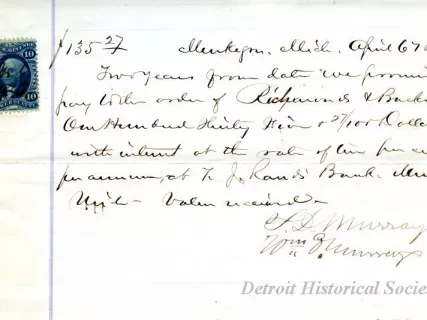 10 10
$135 27 Muskegon, Mich. April 6 70
Two years from date we promi
pay to the order of Richmond & Backu
One Hundred Thirty Five & 27/100 Dolla
with interest at the rate of ten per ce
per annum, at T. J. Rands Bank. Mu
Mich - Value received -
S. D. Murray
Wm F. Murray
Detroit Historical Socie